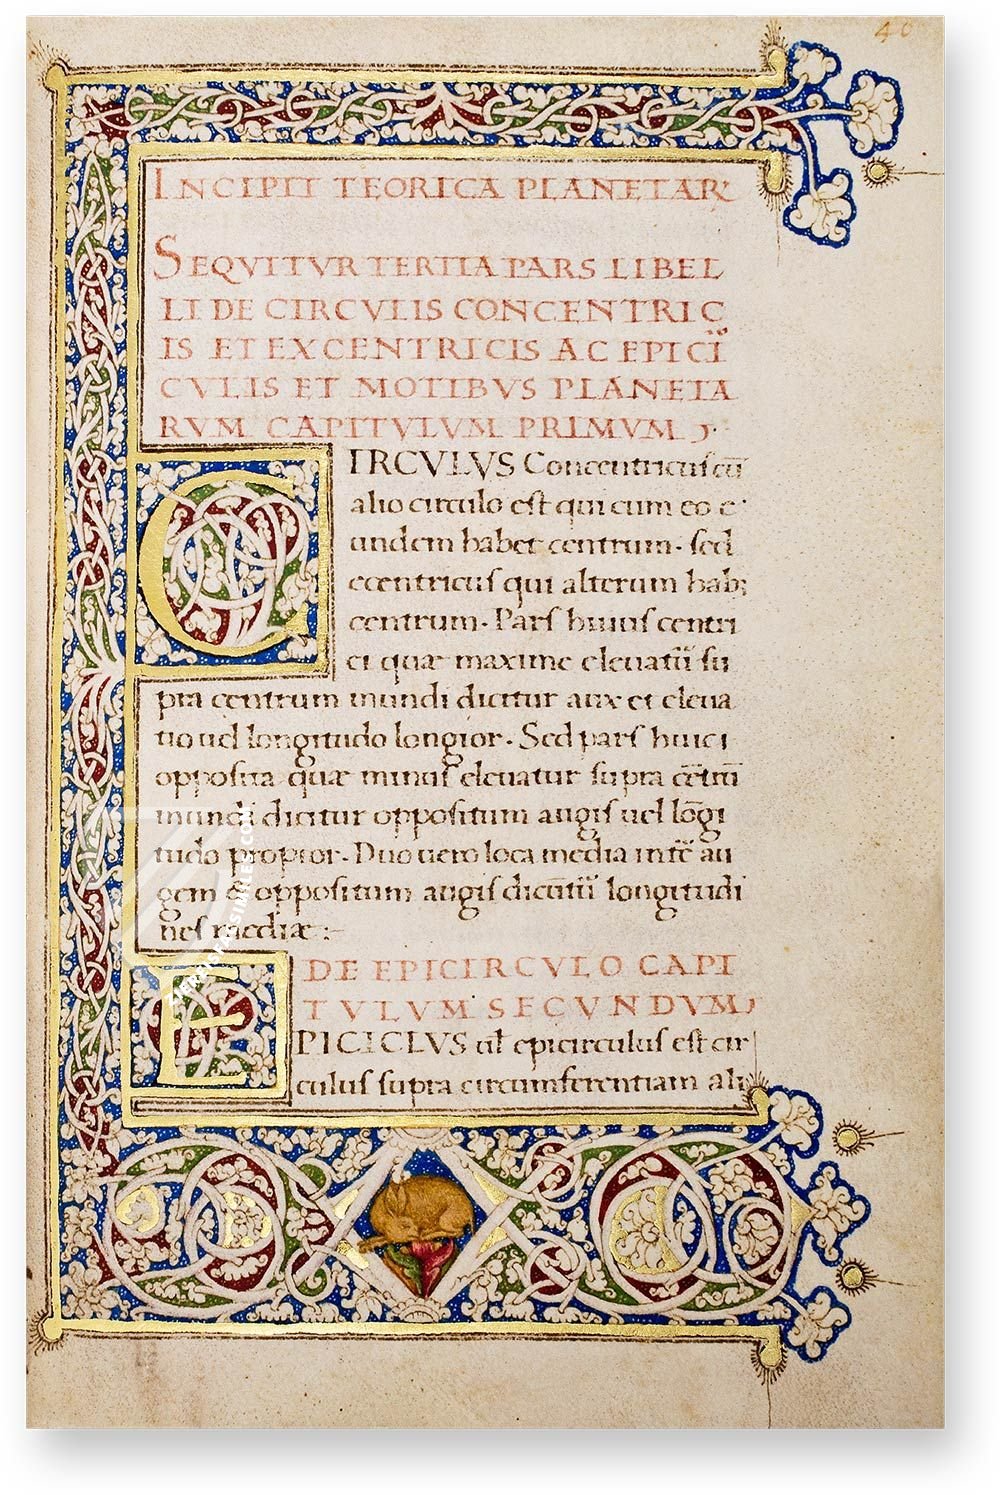 40
INCIPIT TEORICA PLANETAR
SEQVITVR TERTIA PARS LIBEL
LI DE CIRCVLIS CONCENTRIC
IS ET EXCENTRICIS AC EPICI
CVLIS ET MOTIBVS PLANETA
RVM CAPITVLVM PRIMVM
CIRCVLVS Concentricuſ cū
alio circulo eſt qui cum eo e
undem habet centrum. ſed
ecentricuſ qui alterum hab;
centrum. Parſ huiuſ centri
ci quæ maxime eleuatū ſu
pra centrum mundi dicitur aux et eleua
tio uel longitudo longior. Sed parſ huici
oppoſita quæ minuſ eleuatur ſupra cētrū
mundi dicitur oppoſitum augiſ uel lōgi
tudo propior. Duo uero loca media int̄ au
gem & oppoſitum augiſ dicūtū longitudi
neſ mediæ :~
DE EPICIRCVLO CAPI
TVLVM SECVNDVM
EPICICLVS ul̄ epicirculuſ eſt cir
culuſ ſupra circumferentiam ali